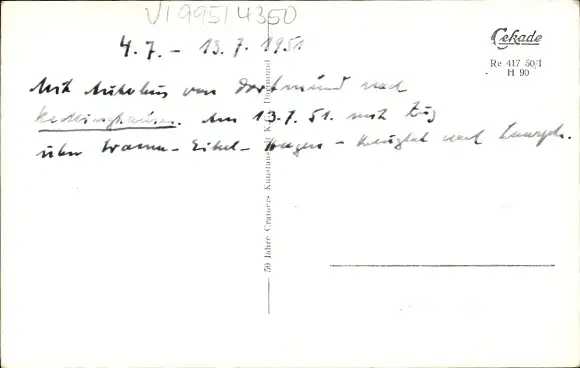 VI 995/4350
4.7. - 13.7. 1951
Cekade
Re 417 50/1
H 90
Mit Autobus von Dortmund nach
Recklinghausen. Am 13.7.51. mit Zug
über Wanne-Eikel-Hagen - nach
50 Jahre Cramers Kunstanstalt KG, Dortmund